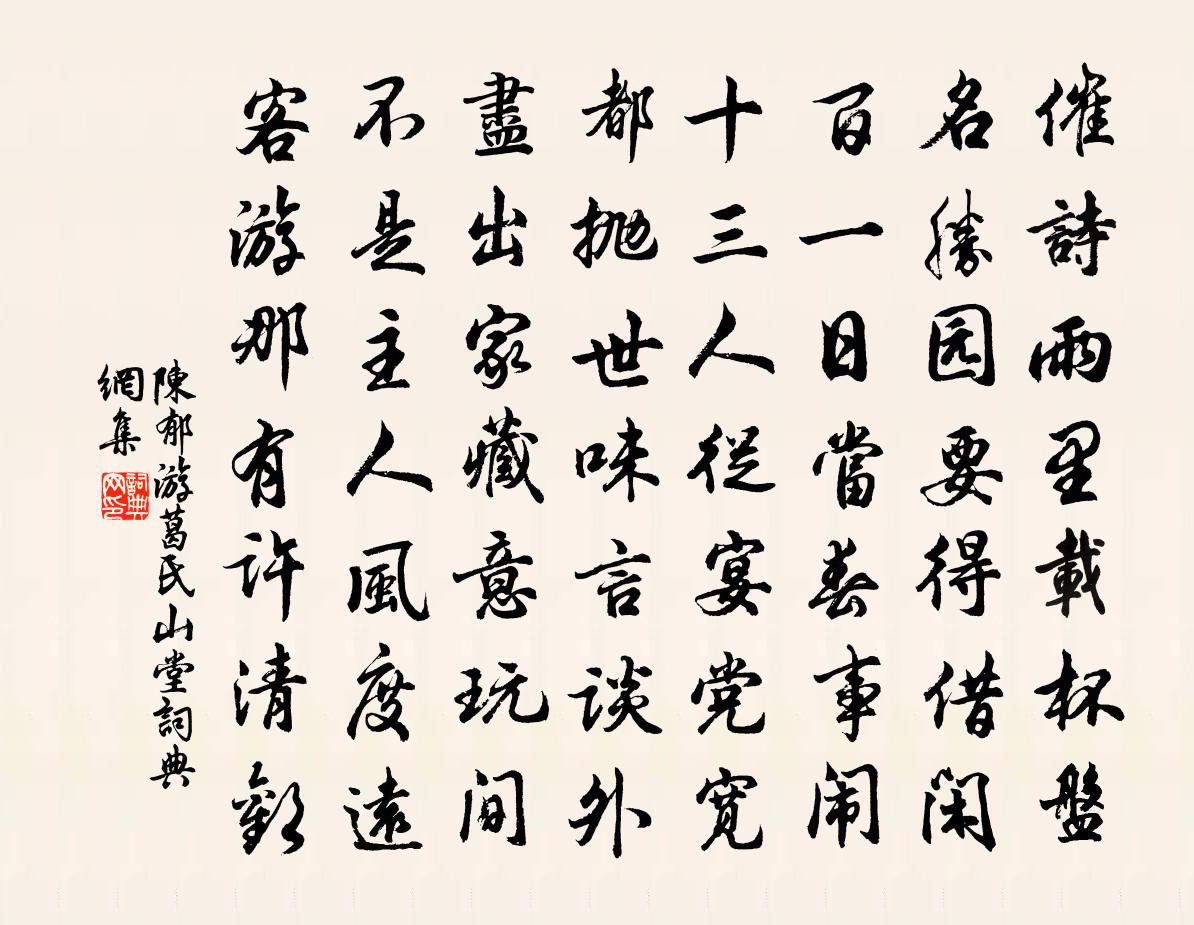 催詩雨里載杯盤
名勝园要得借闲
百一日當春事闹
十三人從宴党寬
都抛世味言谈外
盡出家藏意玩间
不是主人風度遠
客游那有许清歡
陳郁游葛氏山堂詞典
網集
詞典网印